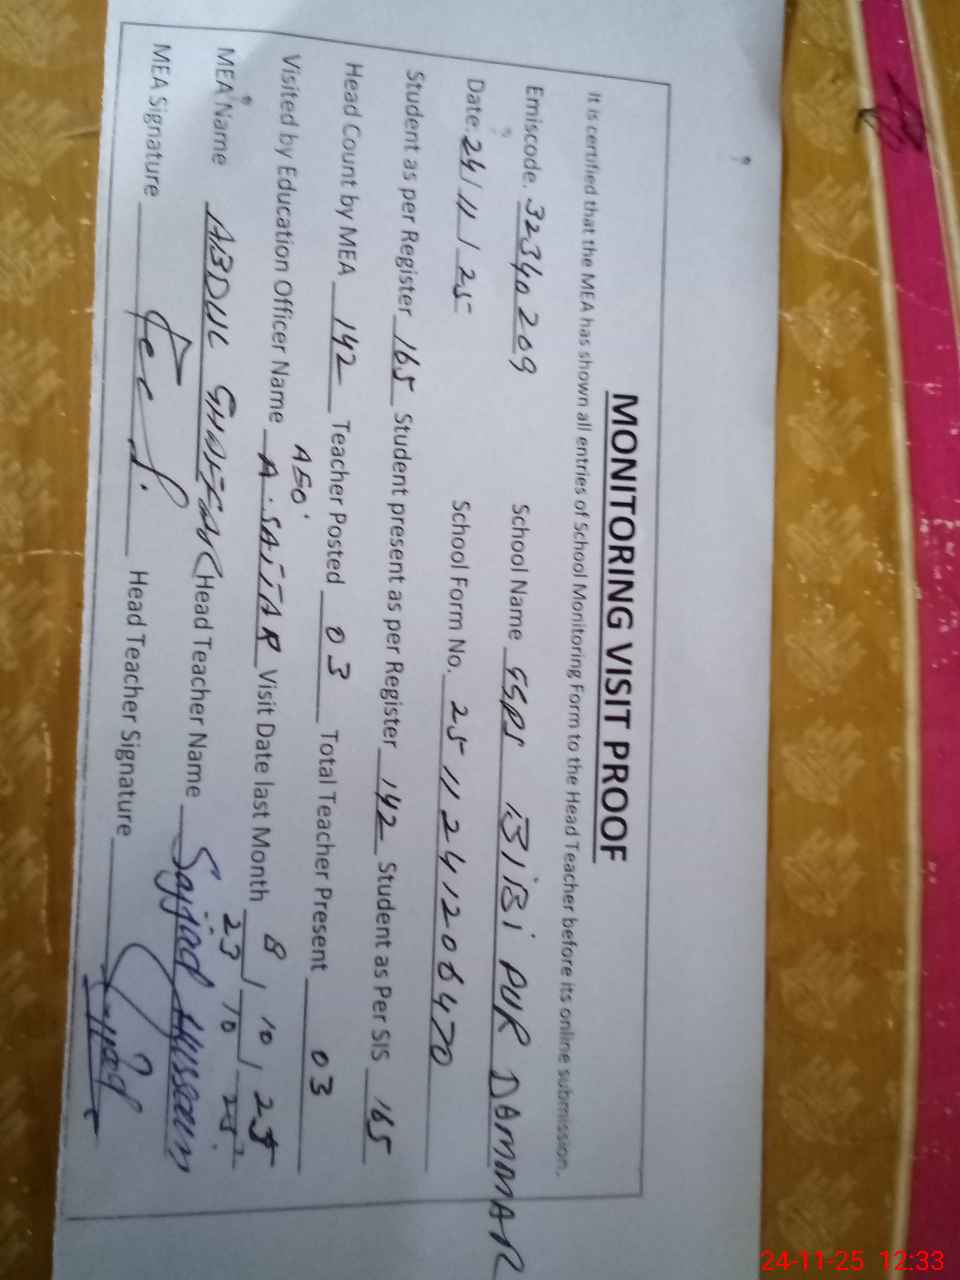 MONITORING VISIT PROOF
It is certified that the MEA has shown all entries of School Monitoring Form to the Head Teacher before its online submission.
Emiscode. 32340209 School Name GGPS BIBI PUR DAMMAR
Date. 24/11/25 School Form No. 2511241206470
Student as per Register 165 Student present as per Register 142 Student as Per SIS 165
Head Count by MEA 142 Teacher Posted 03 Total Teacher Present 03
AEO.
Visited by Education Officer Name A. SATTAR Visit Date last Month 8/10/25
23/10/25
MEA Name ABDUL GHAFFAR Head Teacher Name Sajjad Hussain
MEA Signature Head Teacher Signature
24-11-25 12:33